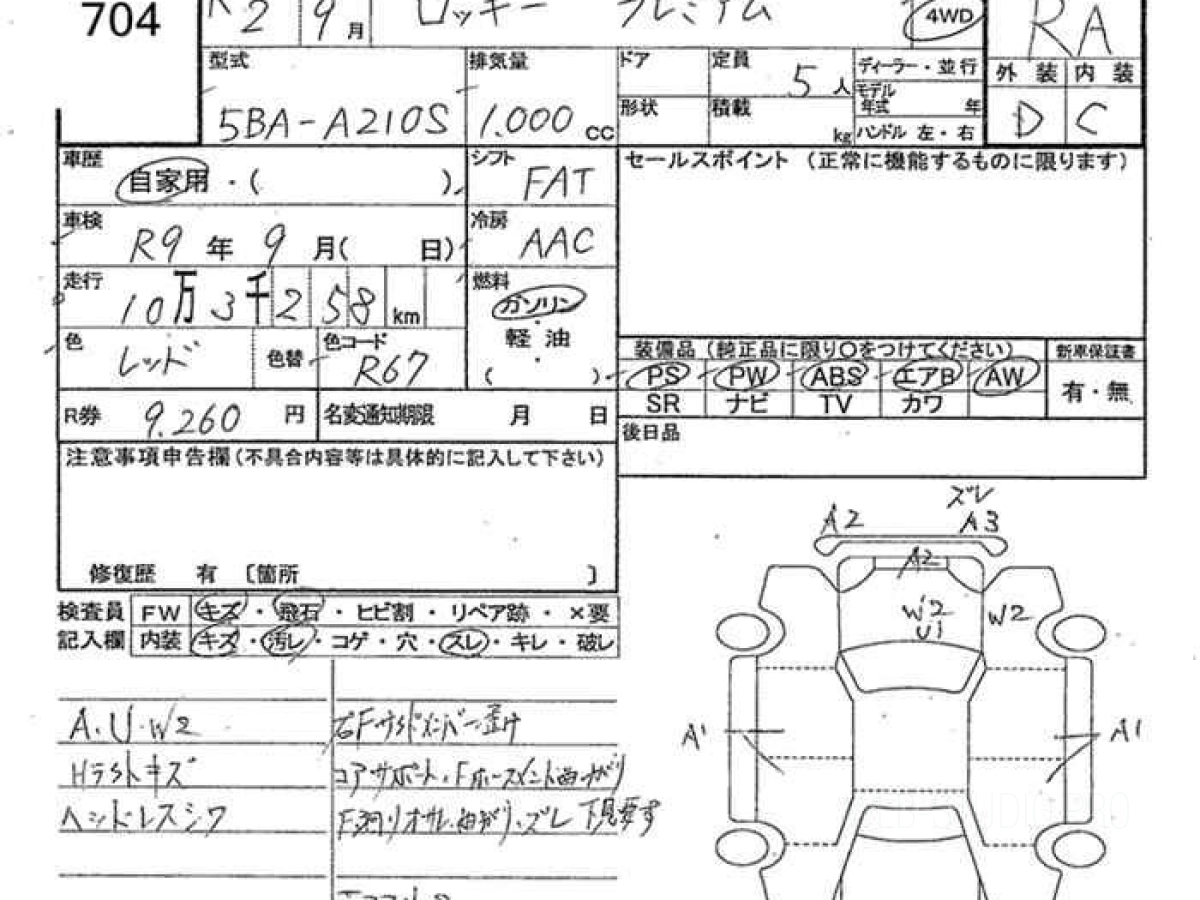 704
R2 9月 ロッキー プレミアム 4WD RA
型式 排気量 ドア 定員 5人 ディーラー・並行 外装 内装
5BA-A210S 1.000 cc 形状 積載 kg モデル年式 年 D C
ハンドル 左・右
車歴 自家用・( ) シフト FAT セールスポイント (正常に機能するものに限ります)
車検 R9年 9月( 日) 冷房 AAC
走行 10万3千258km 燃料 ガソリン
軽油
( )
色 レッド 色替 色コード R67
装備品 (純正品に限り〇をつけてください) 新車保証書
PS PW ABS エアB AW 有・無
SR ナビ TV カワ
R券 9.260円 名変通知期限 月 日 後日品
注意事項申告欄(不具合内容等は具体的に記入して下さい)
修復歴 有 〔箇所 〕
検査員 FW キズ・飛石・ヒビ割・リペア跡・×要
記入欄 内装 キズ・汚レ・コゲ・穴・スレ・キレ・破レ
A.U.W2 右Fサイドメンバー
キズ コアサポート、Fホースメント曲がり
ヘッドレスシワ 曲がり、ズレ 下見要す
ズレ
A2 A3
A2
W2 W2
U1
A1 A1